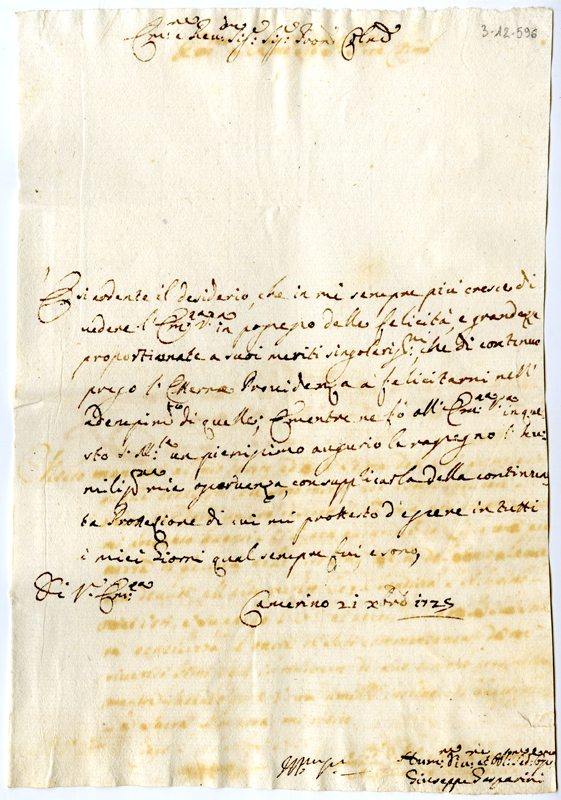 3-12-596
Em.mo e Rev.mo Sig.r Sig.r Pron Col.mo
È si ardente il desiderio, che in mé sempre piú cresce di
vedere l'Em.za V.ra in possesso delle felicità, e grandezze
proportionate a suoi meriti singolariss.mi, che di continuo
prego l'Eterna Providenza a felicitarmi nell'
adempim.to di quelle; E mentre ne fò all'Em.za V.ra in que-
sto S. N.le un pienissimo augurio le rassegno l'hu-
miliss.ma mia osservanza, con supplicarla della continua-
ta Prottezione di cui mi prottesto d'essere in tutti
i miei Giorni qual sempre fui, e sono,
Di V.ra Em.za
Camerino 21 Xbre 1725
Hum.mo Div.mo et Obl.mo
Giuseppe Gasparini